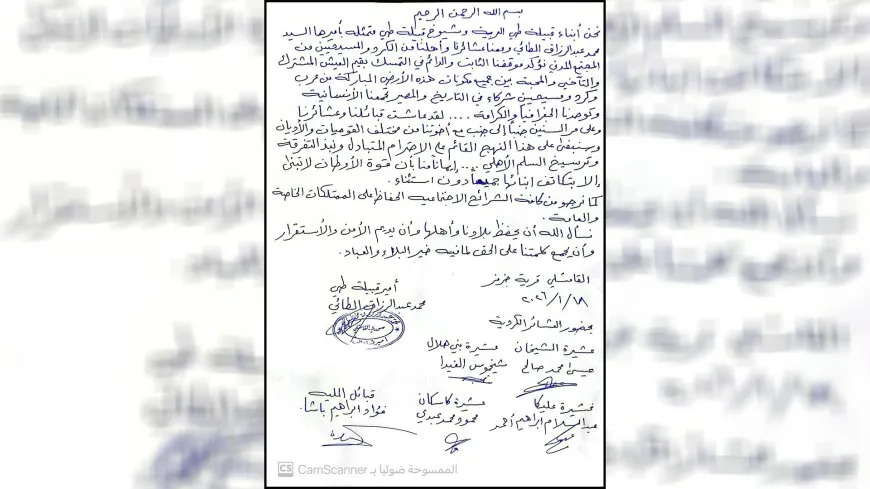 بسم الله الرحمن الرحيم
نحن أبناء قبيلة طي العربية وشيوخ قبيلة طي متمثلة بأميرها السيد
محمد عبدالرزاق الطائي ومعنا عشائرنا وأهلنا من الكرد والمسيحيين من
المجتمع المدني نؤكد موقفنا الثابت والدائم في التمسك بقيم العيش المشترك
والتآخي والمحبة بين جميع مكونات هذه الأرض المباركة من عرب
وكرد ومسيحيين شركاء في التاريخ والمصير تجمعنا الأنسانية
وتوحدنا الجغرافيا والكرامة .... لقد عاشت قبائلنا وعشائرنا
وعلى مر السنين جنباً إلى جنب مع أخوتنا من مختلف القوميات والأديان
وسنبقى على هذا النهج القائم على الاحترام المتبادل ونبذ التفرقة
وترسيخ السلم الأهلي .... إيماناً منا بأن قوة الأوطان لاتبنى
إلا بتكاتف أبنائها جميعاً دون استثناء .
كما نرجو من كافة الشرائح الاجتماعية الحفاظ على الممتلكات الخاصة
والعامة .
نسأل الله أن يحفظ بلادنا وأهلها وأن يديم الأمن والأستقرار
وأن يجمع كلمتنا على الحق لمافيه خير البلاد والعباد.
القامشلي قرية جرمز
٢٠٢٦/١/١٨
أمير قبيلة طي
محمد عبدالرزاق الطائي
بحضور العشائر الكردية
عشيرة الشيخان
عيسى احمد صالح
عشيرة بني هلال
شيخوس الفيدا
عشيرة عليكا
عبدالسلام ابراهيم أحمد
عشيرة كاسكان
محمود محمد عبدي
قبائل الملية
فؤاد ابراهيم باشا.
CS CamScanner الممسوحة ضوئيا بـ